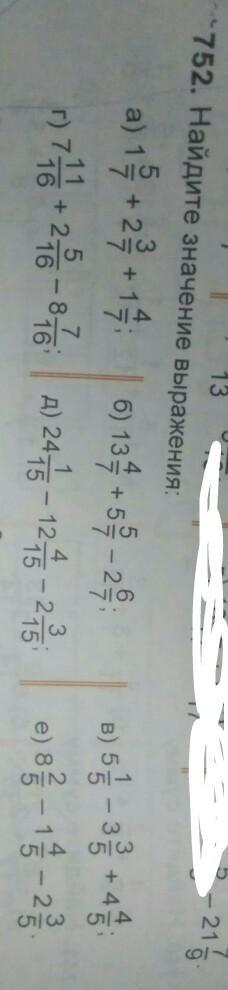 13 − 21 7/9.
752. Найдите значение выражения:
а) 1 5/7 + 2 3/7 + 1 4/7; б) 13 4/7 + 5 5/7 − 2 6/7; в) 5 1/5 − 3 3/5 + 4 4/5;
г) 7 11/16 + 2 5/16 − 8 7/16; д) 24 1/15 − 12 4/15 − 2 3/15; е) 8 2/5 − 1 4/5 − 2 3/5.